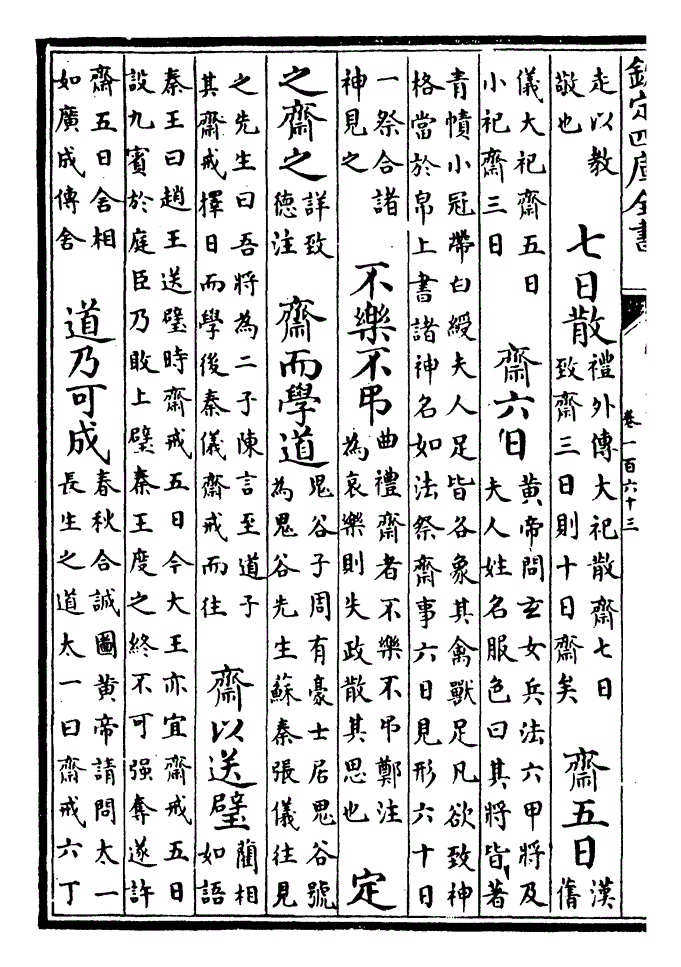 欽定四庫全書
卷一百六十三
走以教
敬也
七日散
禮外傳大祀散齋七日
致齋三日則十日齋矣
齋五日
漢
舊
儀大祀齋五日
小祀齋三日
齋六日
黄帝問玄女兵法六甲將及
夫人姓名服色曰其將皆著
青幘小冠帶白綬夫人足皆各象其禽獸足凡欲致神
格當於帛上書諸神名如法祭齋事六日見形六十日
一祭合諸
神見之
不樂不弔
曲禮齋者不樂不弔鄭注
為哀樂則失政散其思也
定
之齋之
詳致
德注
齋而學道
鬼谷子周有豪士居鬼谷號
為鬼谷先生蘇秦張儀往見
之先生曰吾將為二子陳言至道子
其齋戒擇日而學後秦儀齋戒而往
齋以送璧
藺相
如語
秦王曰趙王送璧時齋戒五日今大王亦宜齋戒五日
設九賓於庭臣乃敢上璧秦王度之終不可强奪遂許
齋五日舍相
如廣成傳舍
道乃可成
春秋合誠圖黄帝請問太一
長生之道太一曰齋戒六丁